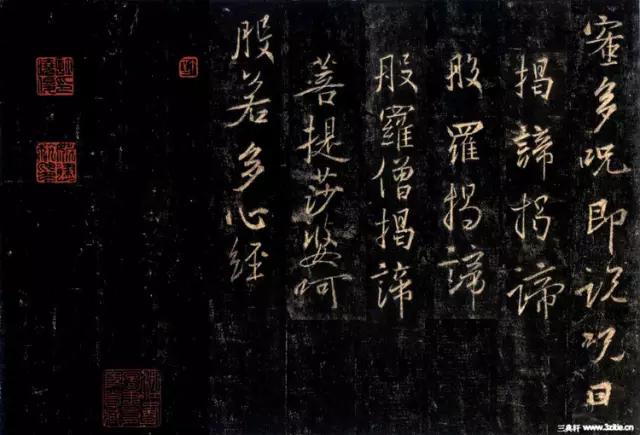 蜜多呪即说呪曰
揭諦揭諦
般羅揭諦
般羅僧揭諦
菩提莎婆呵
般若多心經
三典轩 www.3zitie.cn